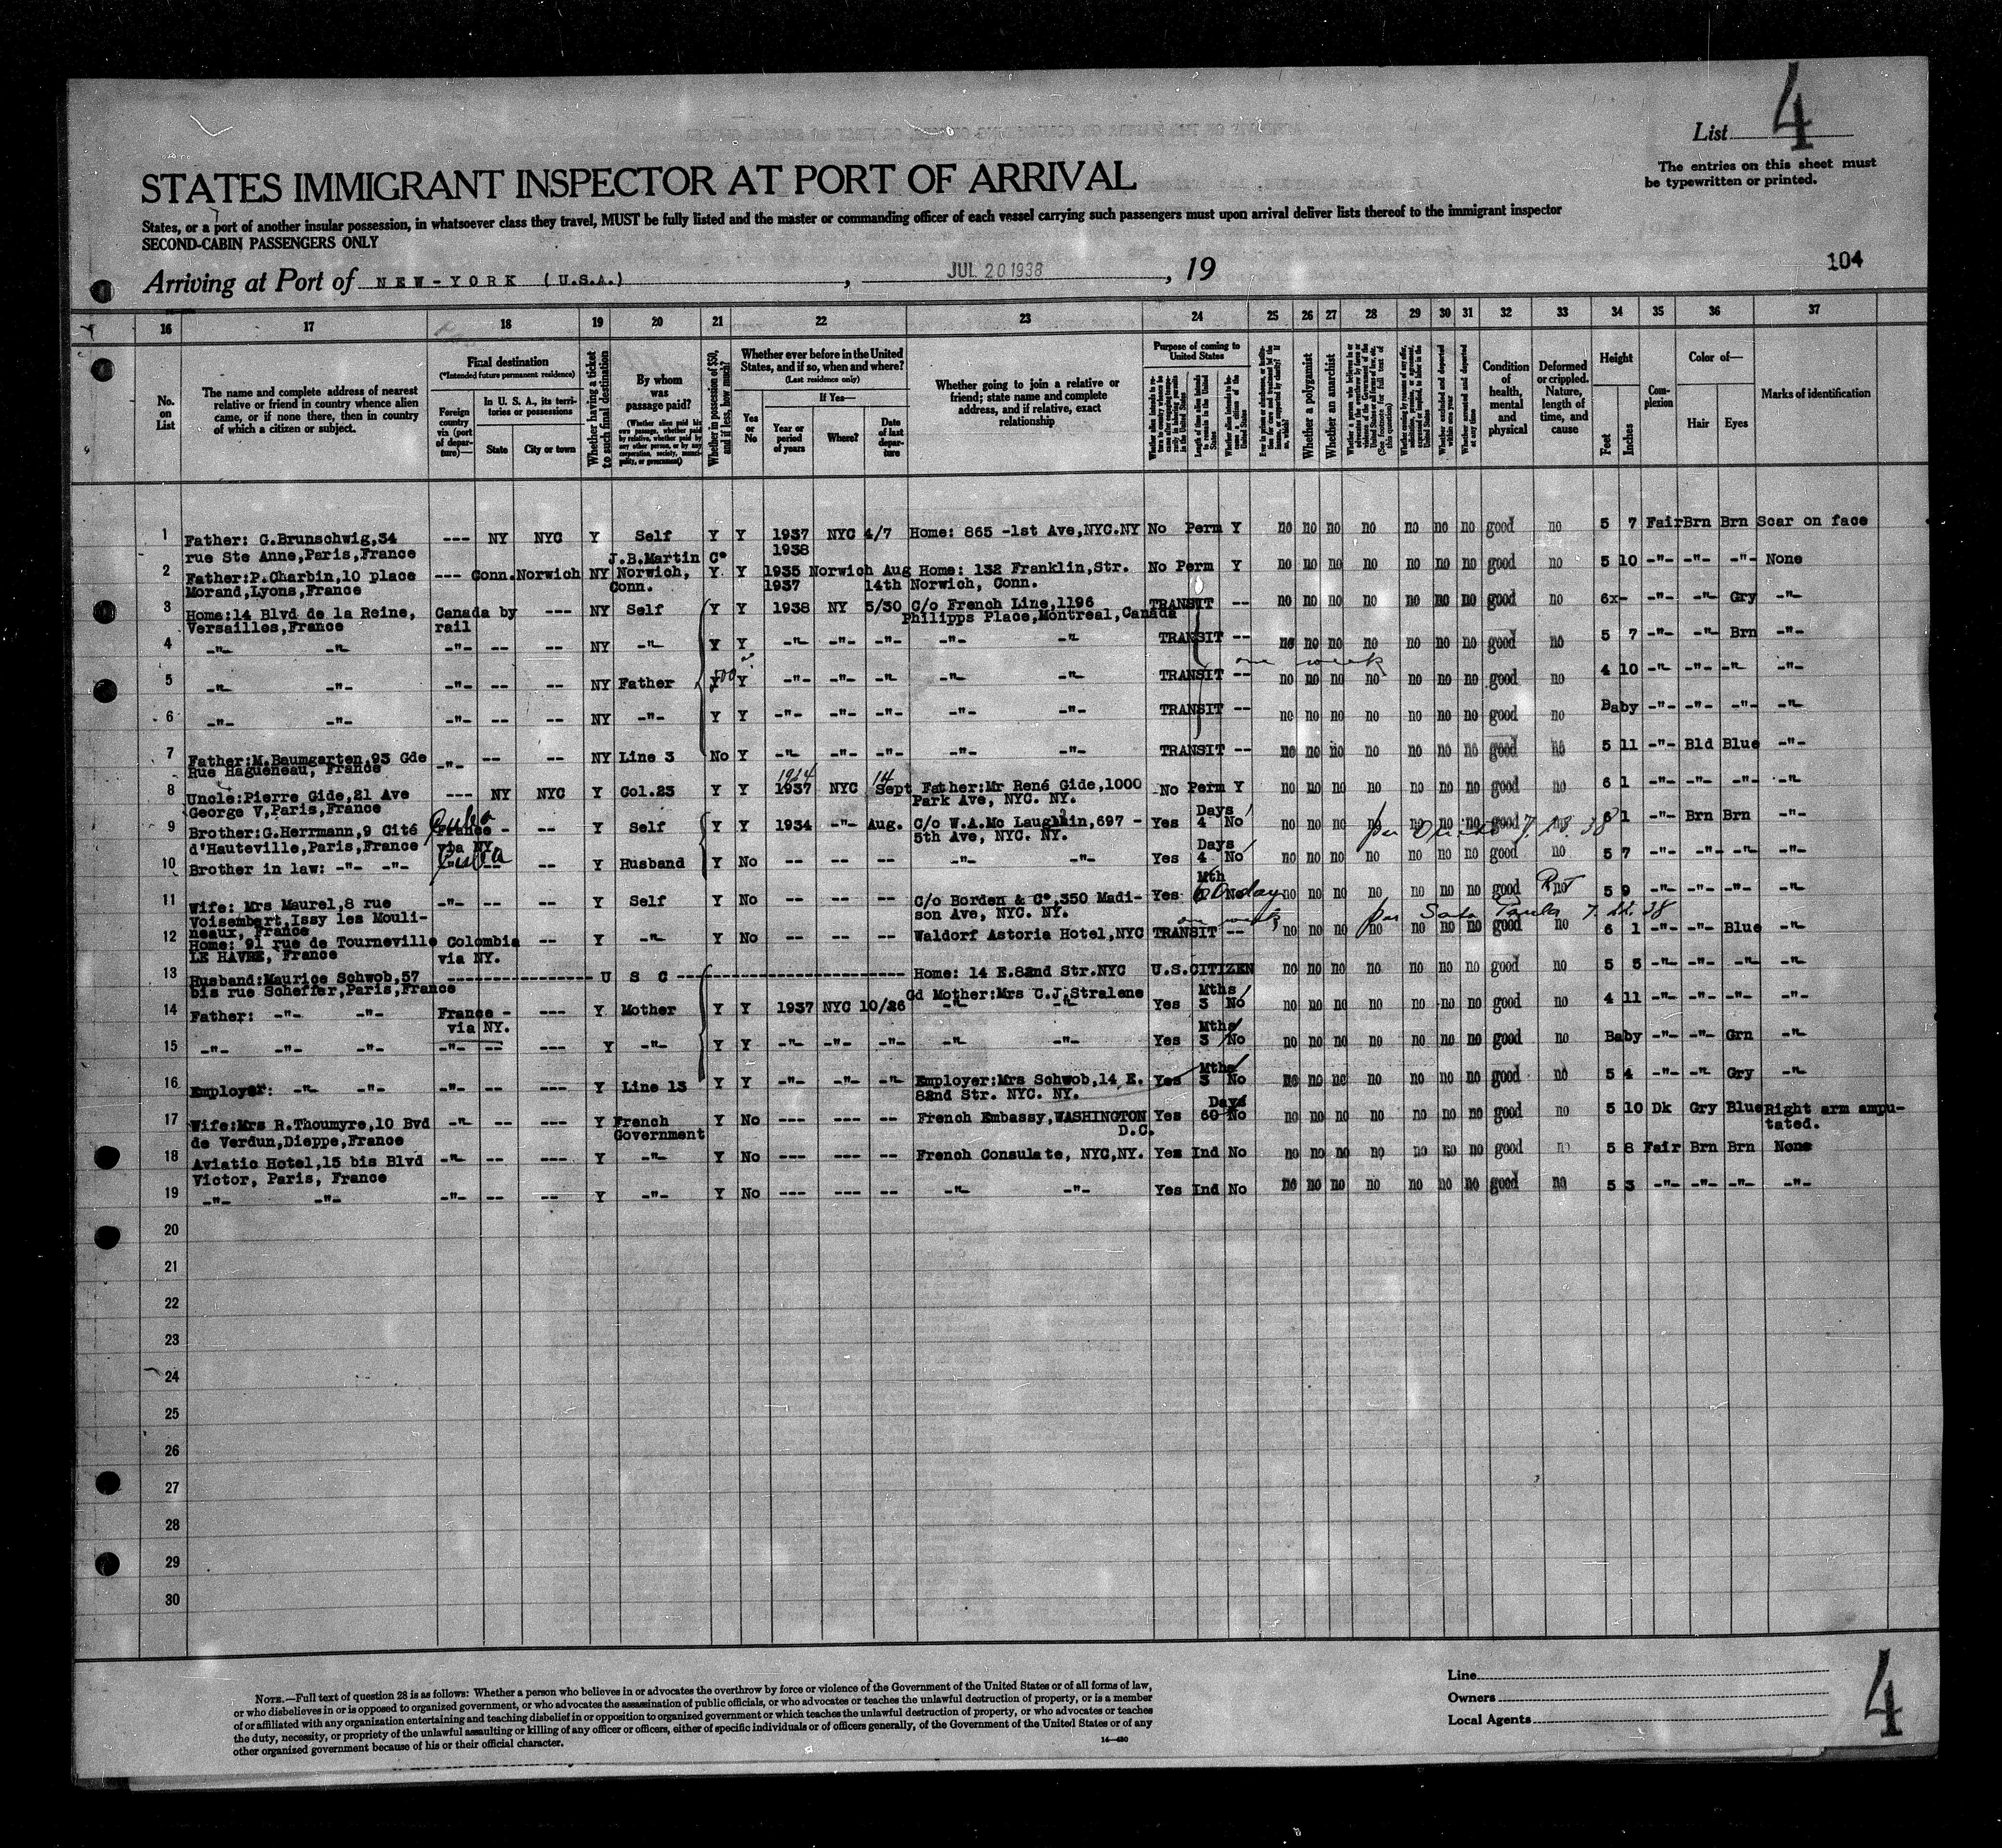 List 4
The entries on this sheet must
be typewritten or printed.
STATES IMMIGRANT INSPECTOR AT PORT OF ARRIVAL
States, or a port of another insular possession, in whatsoever class they travel, MUST be fully listed and the master or commanding officer of each vessel carrying such passengers must upon arrival deliver lists thereof to the immigrant inspector
SECOND-CABIN PASSENGERS ONLY
Arriving at Port of NEW-YORK (U.S.A.) , JUL 20 1938 , 19
104
16 17 18 19 20 21 22 23 24 25 26 27 28 29 30 31 32 33 34 35 36 37
No. on List
The name and complete address of nearest relative or friend in country whence alien came, or if none there, then in country of which a citizen or subject.
Final destination
(*Intended future permanent residence)
Foreign country via (port of departure)—
In U. S. A., its territories or possessions
State
City or town
Whether having a ticket to such final destination
By whom was passage paid?
(Whether alien paid his own passage, whether paid by relative, whether paid by any other person, or by any corporation, society, municipality, or government)
Whether in possession of $50, and if less, how much?
Whether ever before in the United States, and if so, when and where?
(Last residence only)
Yes or No
If Yes—
Year or period of years
Where?
Date of last departure
Whether going to join a relative or friend; state name and complete address, and if relative, exact relationship
Purpose of coming to United States
Length of time alien intends to remain in the United States
Whether alien intends to become a citizen of the United States
Whether a polygamist
Whether an anarchist
(See footnote for full text of this question)
Whether excluded and deported within one year
Whether arrested and deported at any time
Condition of health, mental and physical
Deformed or crippled. Nature, length of time, and cause
Height
Feet
Inches
Complexion
Color of—
Hair
Eyes
Marks of identification
1 Father: G.Brunschwig,34 --- NY NYC Y Self Y Y 1937 NYC 4/7 Home: 865 -1st Ave,NYC.NY No Perm Y no no no no no no no good no 5 7 Fair Brn Brn Scar on face
rue Ste Anne,Paris,France 1938
J.B.Martin C°
2 Father:P.Charbin,10 place --- Conn.Norwich NY Norwich, Y Y 1935 Norwich Aug Home: 132 Franklin,Str. No Perm Y no no no no no no no good no 5 10 -"- -"- -"- None
Morand,Lyons,France Conn. 1937 14th Norwich, Conn.
3 Home:14 Blvd de la Reine, Canada by --- NY Self Y Y 1938 NY 5/30 C/o French Line,1196 TRANSIT -- no no no no no no no good no 6x- -"- -"- Gry -"-
Versailles,France rail Philipps Place,Montreal,Canada
4 -"- -"- -"- -- -- NY -"- Y Y -"- -"- -"- -"- -"- TRANSIT -- no no no no no no no good no 5 7 -"- -"- Brn -"-
one week
5 -"- -"- -"- -- -- NY Father Y Y -"- -"- -"- -"- -"- TRANSIT -- no no no no no no no good no 4 10 -"- -"- -"- -"-
500
6 -"- -"- -"- -- -- NY -"- Y Y -"- -"- -"- -"- -"- TRANSIT -- no no no no no no no good no Baby -"- -"- -"- -"-
7 Father:M.Baumgarten,93 Gde -"- -- -- NY Line 3 No Y -"- -"- -"- -"- -"- TRANSIT -- no no no no no no no good no 5 11 -"- Bld Blue -"-
Rue Hagueneau, France
1924 14
8 Uncle:Pierre Gide,21 Ave --- NY NYC Y Col.23 Y Y 1937 NYC Sept Father:Mr René Gide,1000 No Perm Y no no no no no no no good no 6 1 -"- -"- -"- -"-
George V,Paris,France Park Ave, NYC. NY.
Cuba Days
9 Brother:G.Herrmann,9 Cité France - -- Y Self Y Y 1934 -"- Aug. C/o W.A.Mc Laughlin,697 - Yes 4 No no no no no no no no good no 6 1 -"- Brn Brn -"-
d'Hauteville,Paris,France via NY. 5th Ave, NYC. NY.
7. 23. 38
Cuba Days
10 Brother in law: -"- -"- -- -- Y Husband Y No -- -- -- -"- -"- Yes 4 No no no no no no no no good no 5 7 -"- -"- -"- -"-
Mth
11 Wife: Mrs Maurel,8 rue -"- -- -- Y Self Y No -- -- -- C/o Borden & C°,350 Madi- Yes 60 days No no no no no no no no good no 5 9 -"- -"- -"- -"-
Voisembert,Issy les Mouli- son Ave, NYC. NY.
neaux, France
one week per Santa Paula 7. 22. 38
12 Home: 91 rue de Tourneville Colombia -- Y -"- Y No -- -- -- Waldorf Astoria Hotel,NYC TRANSIT -- no no no no no no no good no 6 1 -"- -"- Blue -"-
LE HAVRE, France via NY.
13 Husband:Maurice Schwob,57 ---------- U S C ---------- Home: 14 E.82nd Str.NYC U.S.CITIZEN no no no no no no no good no 5 5 -"- -"- -"- -"-
bis rue Scheffer,Paris,France
Gd Mother:Mrs C.J.Stralene Mths
14 Father: -"- -"- France - --- Y Mother Y Y 1937 NYC 10/26 -"- -"- Yes 3 No no no no no no no no good no 4 11 -"- -"- -"- -"-
via NY. Mths
15 -"- -"- -"- -"- -- --- Y -"- Y Y -"- -"- -"- -"- -"- Yes 3 No no no no no no no no good no Baby -"- -"- Grn -"-
Mths
16 Employer: -"- -"- -"- -- --- Y Line 13 Y Y -"- -"- -"- Employer:Mrs Schwob,14 E. Yes 3 No no no no no no no no good no 5 4 -"- -"- Gry -"-
82nd Str. NYC. NY.
Days
17 Wife:Mrs R.Thoumyre,10 Bvd -"- -- --- Y French Y No --- --- -- French Embassy,WASHINGTON Yes 60 No no no no no no no no good no 5 10 Dk Gry Blue Right arm ampu-
de Verdun,Dieppe,France Government D.C. tated.
18 Aviatic Hotel,15 bis Blvd -"- -- --- Y -"- Y No --- --- -- French Consulate, NYC,NY. Yes Ind No no no no no no no no good no 5 8 Fair Brn Brn None
Victor, Paris, France
19 -"- -"- -"- -- --- Y -"- Y No --- --- -- -"- -"- Yes Ind No no no no no no no no good no 5 3 -"- -"- -"- -"-
20
21
22
23
24
25
26
27
28
29
30
NOTE.—Full text of question 28 is as follows: Whether a person who believes in or advocates the overthrow by force or violence of the Government of the United States or of all forms of law,
or who disbelieves in or is opposed to organized government, or who advocates the assassination of public officials, or who advocates or teaches the unlawful destruction of property, or is a member
of or affiliated with any organization entertaining and teaching disbelief in or opposition to organized government or which teaches the unlawful destruction of property, or who advocates or teaches
the duty, necessity, or propriety of the unlawful assaulting or killing of any officer or officers, either of specific individuals or of officers generally, of the Government of the United States or of any
other organized government because of his or their official character.
14—430
Line
Owners
Local Agents
4